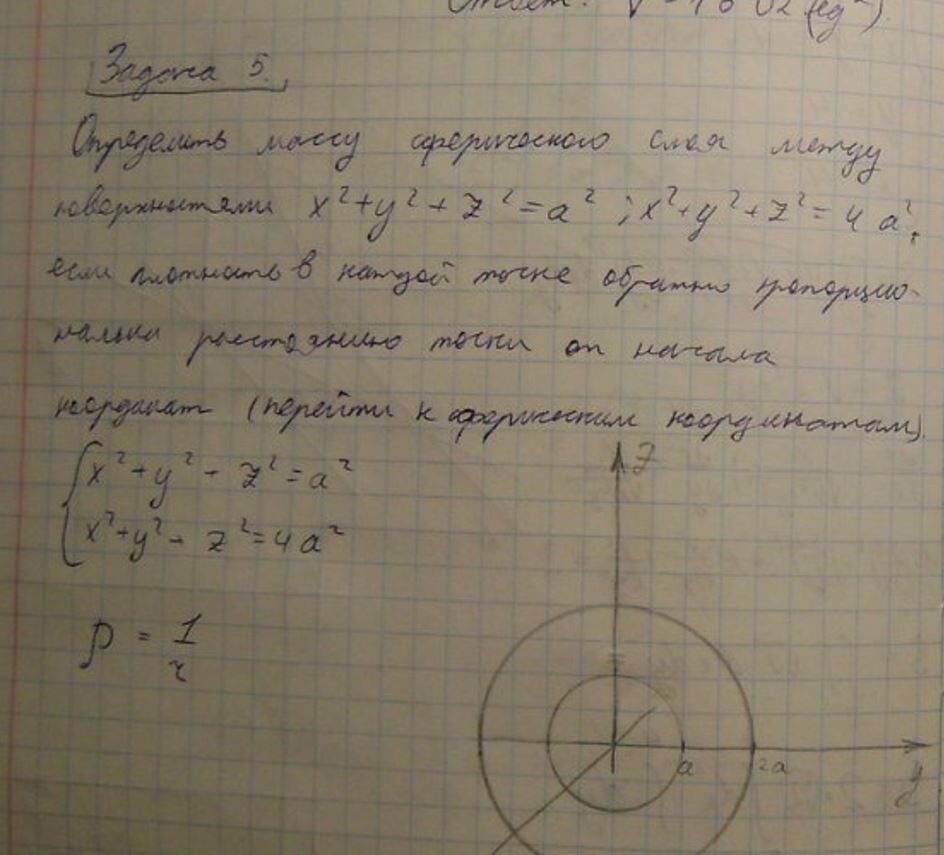 Ответ: V = (ед²).
Задача 5.
Определить массу сферического слоя между
поверхностями x² + y² + z² = a²; x² + y² + z² = 4a²,
если плотность в каждой точке обратно пропорцио-
нальна расстоянию точки от начала
координат (перейти к сферическим координатам).
x² + y² + z² = a²
x² + y² + z² = 4a²
ρ = 1/r
z
a
2a
y